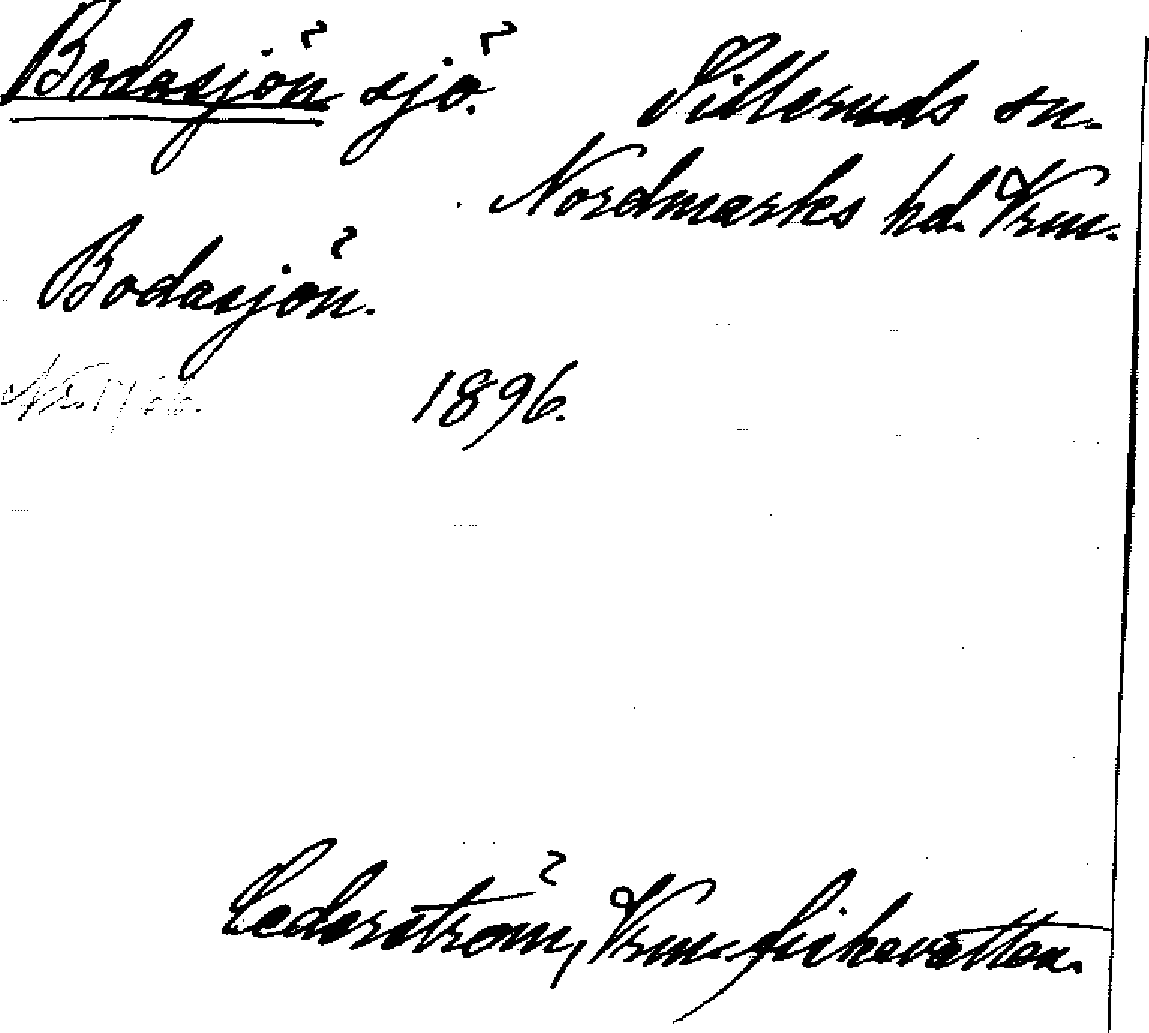 Bodasjön sjö. Silleruds sn.
Nordmarks hd. Vrm.
Bodasjön.
1896.
Cederström, Vrm. fiskevatten.